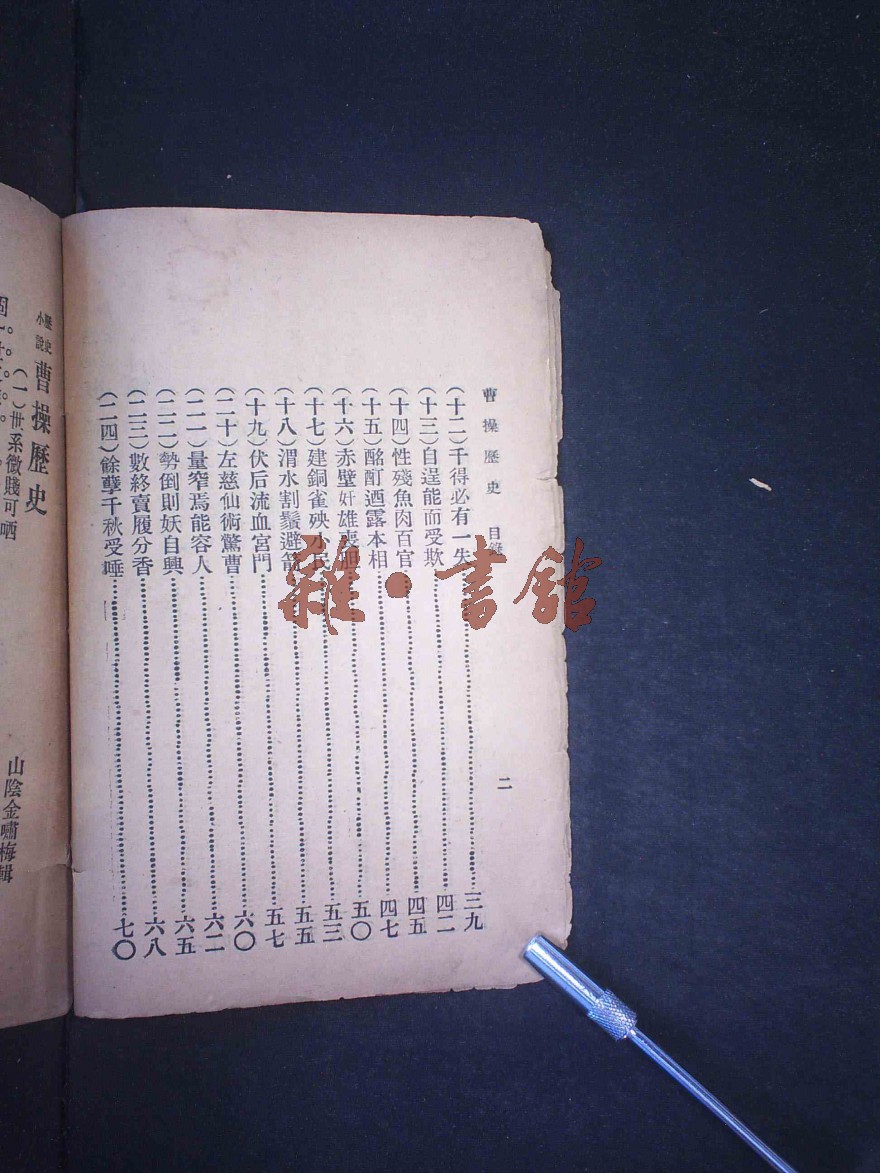 曹操歷史 目錄 二
(十二)千得必有一失 三九
(十三)自逞能而受欺 四二
(十四)性殘魚肉百官 四五
(十五)酩酊迺露本相 四七
(十六)赤壁奸雄喪胆 五〇
(十七)建銅雀殃小民 五三
(十八)渭水割鬚避箭 五五
(十九)伏后流血宮門 五七
(二十)左慈仙術驚曹 六〇
(二一)量窄焉能容人 六二
(二二)勢倒則妖自興 六五
(二三)數終賣履分香 六八
(二四)餘孽千秋受唾 七〇
歷史小說 曹操歷史
山陰金嘯梅輯
(一)世系微賤可哂
雜·書館